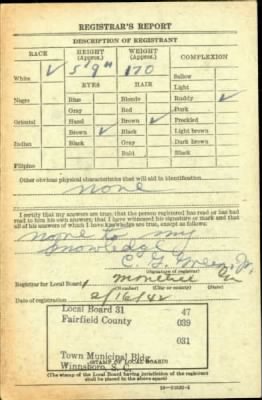 REGISTRAR'S REPORT
DESCRIPTION OF REGISTRANT
RACE HEIGHT (Approx.) WEIGHT (Approx.) COMPLEXION
White ✓ 5' 9" 170 Sallow
EYES HAIR Light
Negro Blue Blonde Ruddy ✓
Gray Red Dark
Oriental Hazel Brown ✓ Freckled
Brown ✓ Black Light brown
Indian Black Gray Dark brown
Bald Black
Filipino
Other obvious physical characteristics that will aid in identification
none
I certify that my answers are true; that the person registered has read or has had
read to him his own answers; that I have witnessed his signature or mark and that
all of his answers of which I have knowledge are true, except as follows:
none to my
knowledge
(Signature of registrar)
Registrar for Local Board 1
Date of registration 2/16/42
Local Board 31 47
Fairfield County 039
031
Town Municipal Bldg.
Winnsboro, S. C.
(STAMP OF LOCAL BOARD)
(The stamp of the Local Board having jurisdiction of the registrant
shall be placed in the above space)